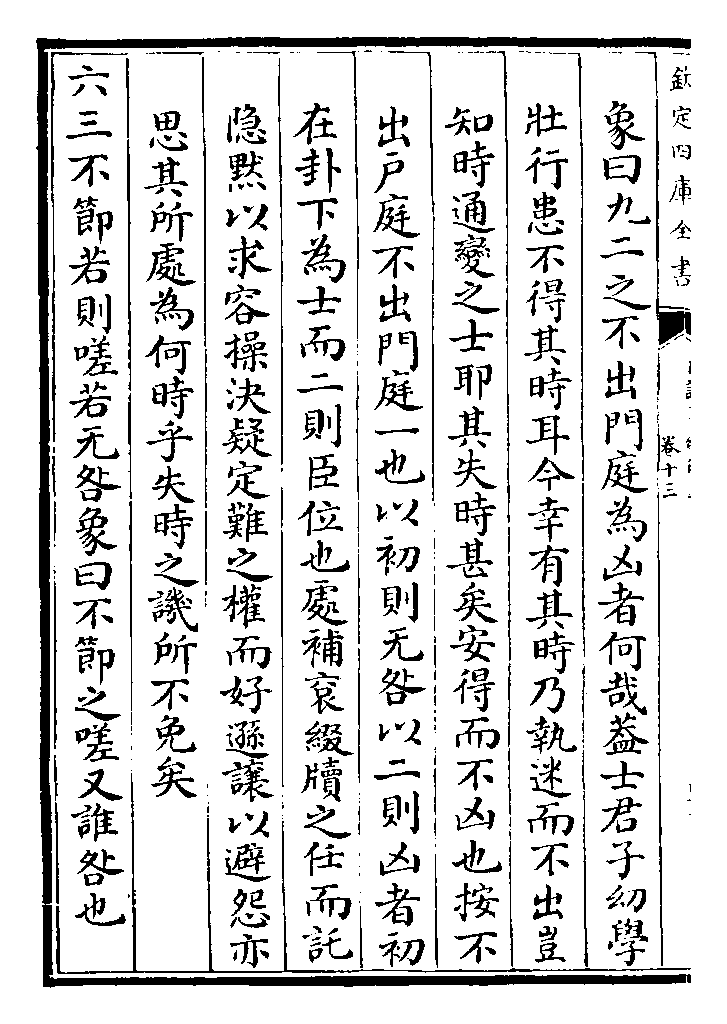 欽定四庫全書
卷十三
象曰九二之不出門庭為凶者何哉葢士君子幼學
壯行患不得其時耳今幸有其時乃執迷而不出豈
知時通變之士耶其失時甚矣安得而不凶也按不
出戶庭不出門庭一也以初則无咎以二則凶者初
在卦下為士而二則臣位也處補衮綴牘之任而託
隐黙以求容操決疑定難之權而好遜讓以避怨亦
思其所處為何時乎失時之譏所不免矣
六三不節若則嗟若无咎象曰不節之嗟又誰咎也